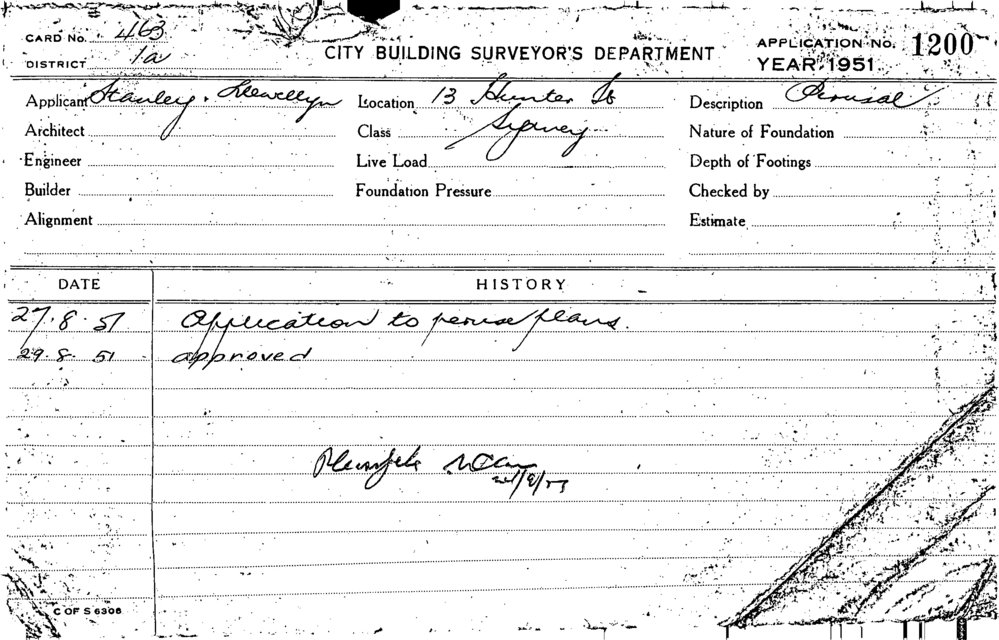 CARD No. 463
DISTRICT 1a
CITY BUILDING SURVEYOR'S DEPARTMENT
APPLICATION No. 1200
YEAR 1951
Applicant Stanley. Llewellyn Location 13 Hunter St Description Perusal
Architect Class Sydney Nature of Foundation
Engineer Live Load Depth of Footings
Builder Foundation Pressure Checked by
Alignment Estimate
DATE HISTORY
27.8.51 Application to peruse plans.
29.8.51 approved
C OF S 6306